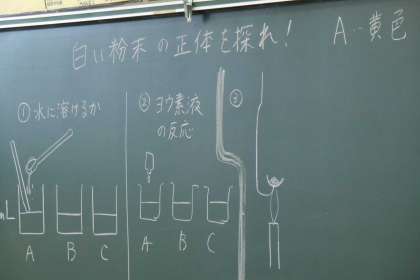 白い粉末の正体を探れ！
A…黄色
① 水に溶けるか
② ヨウ素液
の反応
③
mL
A B C
A B C